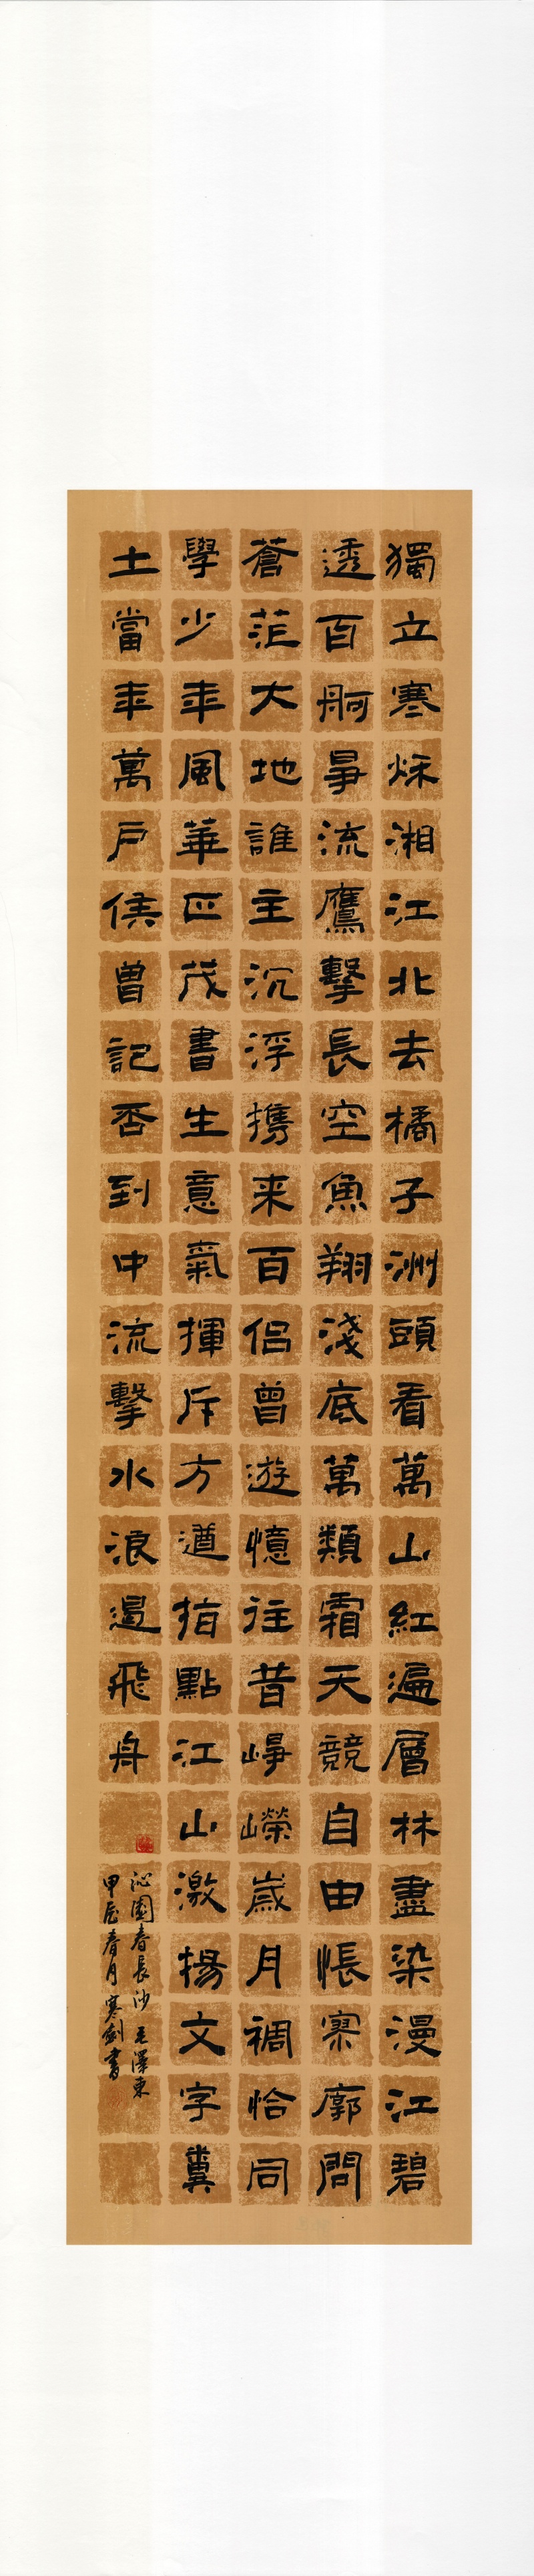 獨立寒秌湘江北去橘子洲頭看萬山紅遍層林盡染漫江碧
透百舸爭流鷹擊長空魚翔淺底萬類霜天競自由悵寥廓問
蒼茫大地誰主沉浮攜来百侣曾遊憶往昔崢嶸歲月裯恰同
學少年風華正茂書生意氣揮斥方遒指點江山激揚文字糞
土當年萬户侯曾記否到中流擊水浪遏飛舟
沁園春長沙 毛澤東
甲辰春月 寒劍書